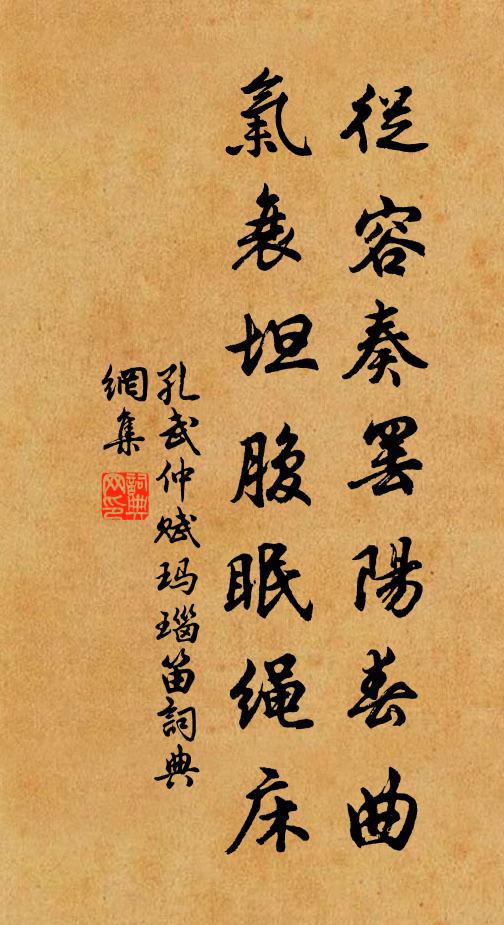 從容奏罷陽春曲
氣衰坦腹眠绳床
孔武仲賦玛瑙笛詞典
網集
詞典
网印